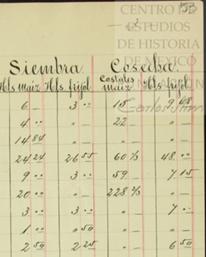 CENTRO DE
ESTUDIOS
DE HISTORIA
DE MÉXICO
Siembra. Cosecha.
Hls maiz Hls. frijol Costales maiz Hls. frijol
6 — 3 .. 15 9 48
4 .. " — 22 — " —
14 84 " — " — " —
24 24 26 55 60 ½ 48 ..
9 .. 3 .. 59 7 15
20 .. " — 228 ⅔ " —
3 .. 3 .. " — 7 ..
1 .. " 50 " — " —
2 50 2 25 " — 6 50